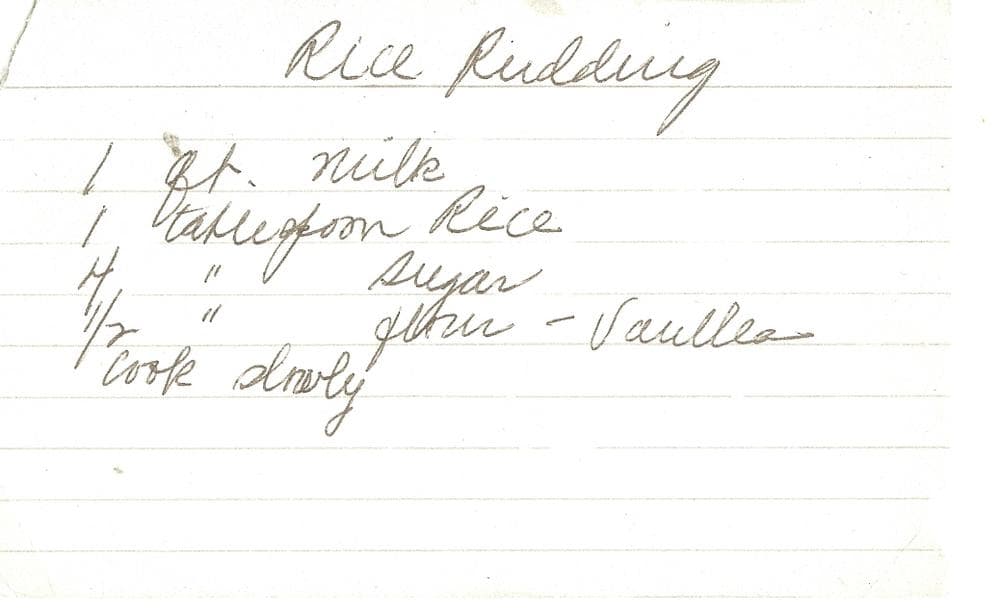 Rice Pudding
1 qt. milk
1 tablespoon Rice
4 " sugar
1/2 " flour - Vanilla
Cook slowly